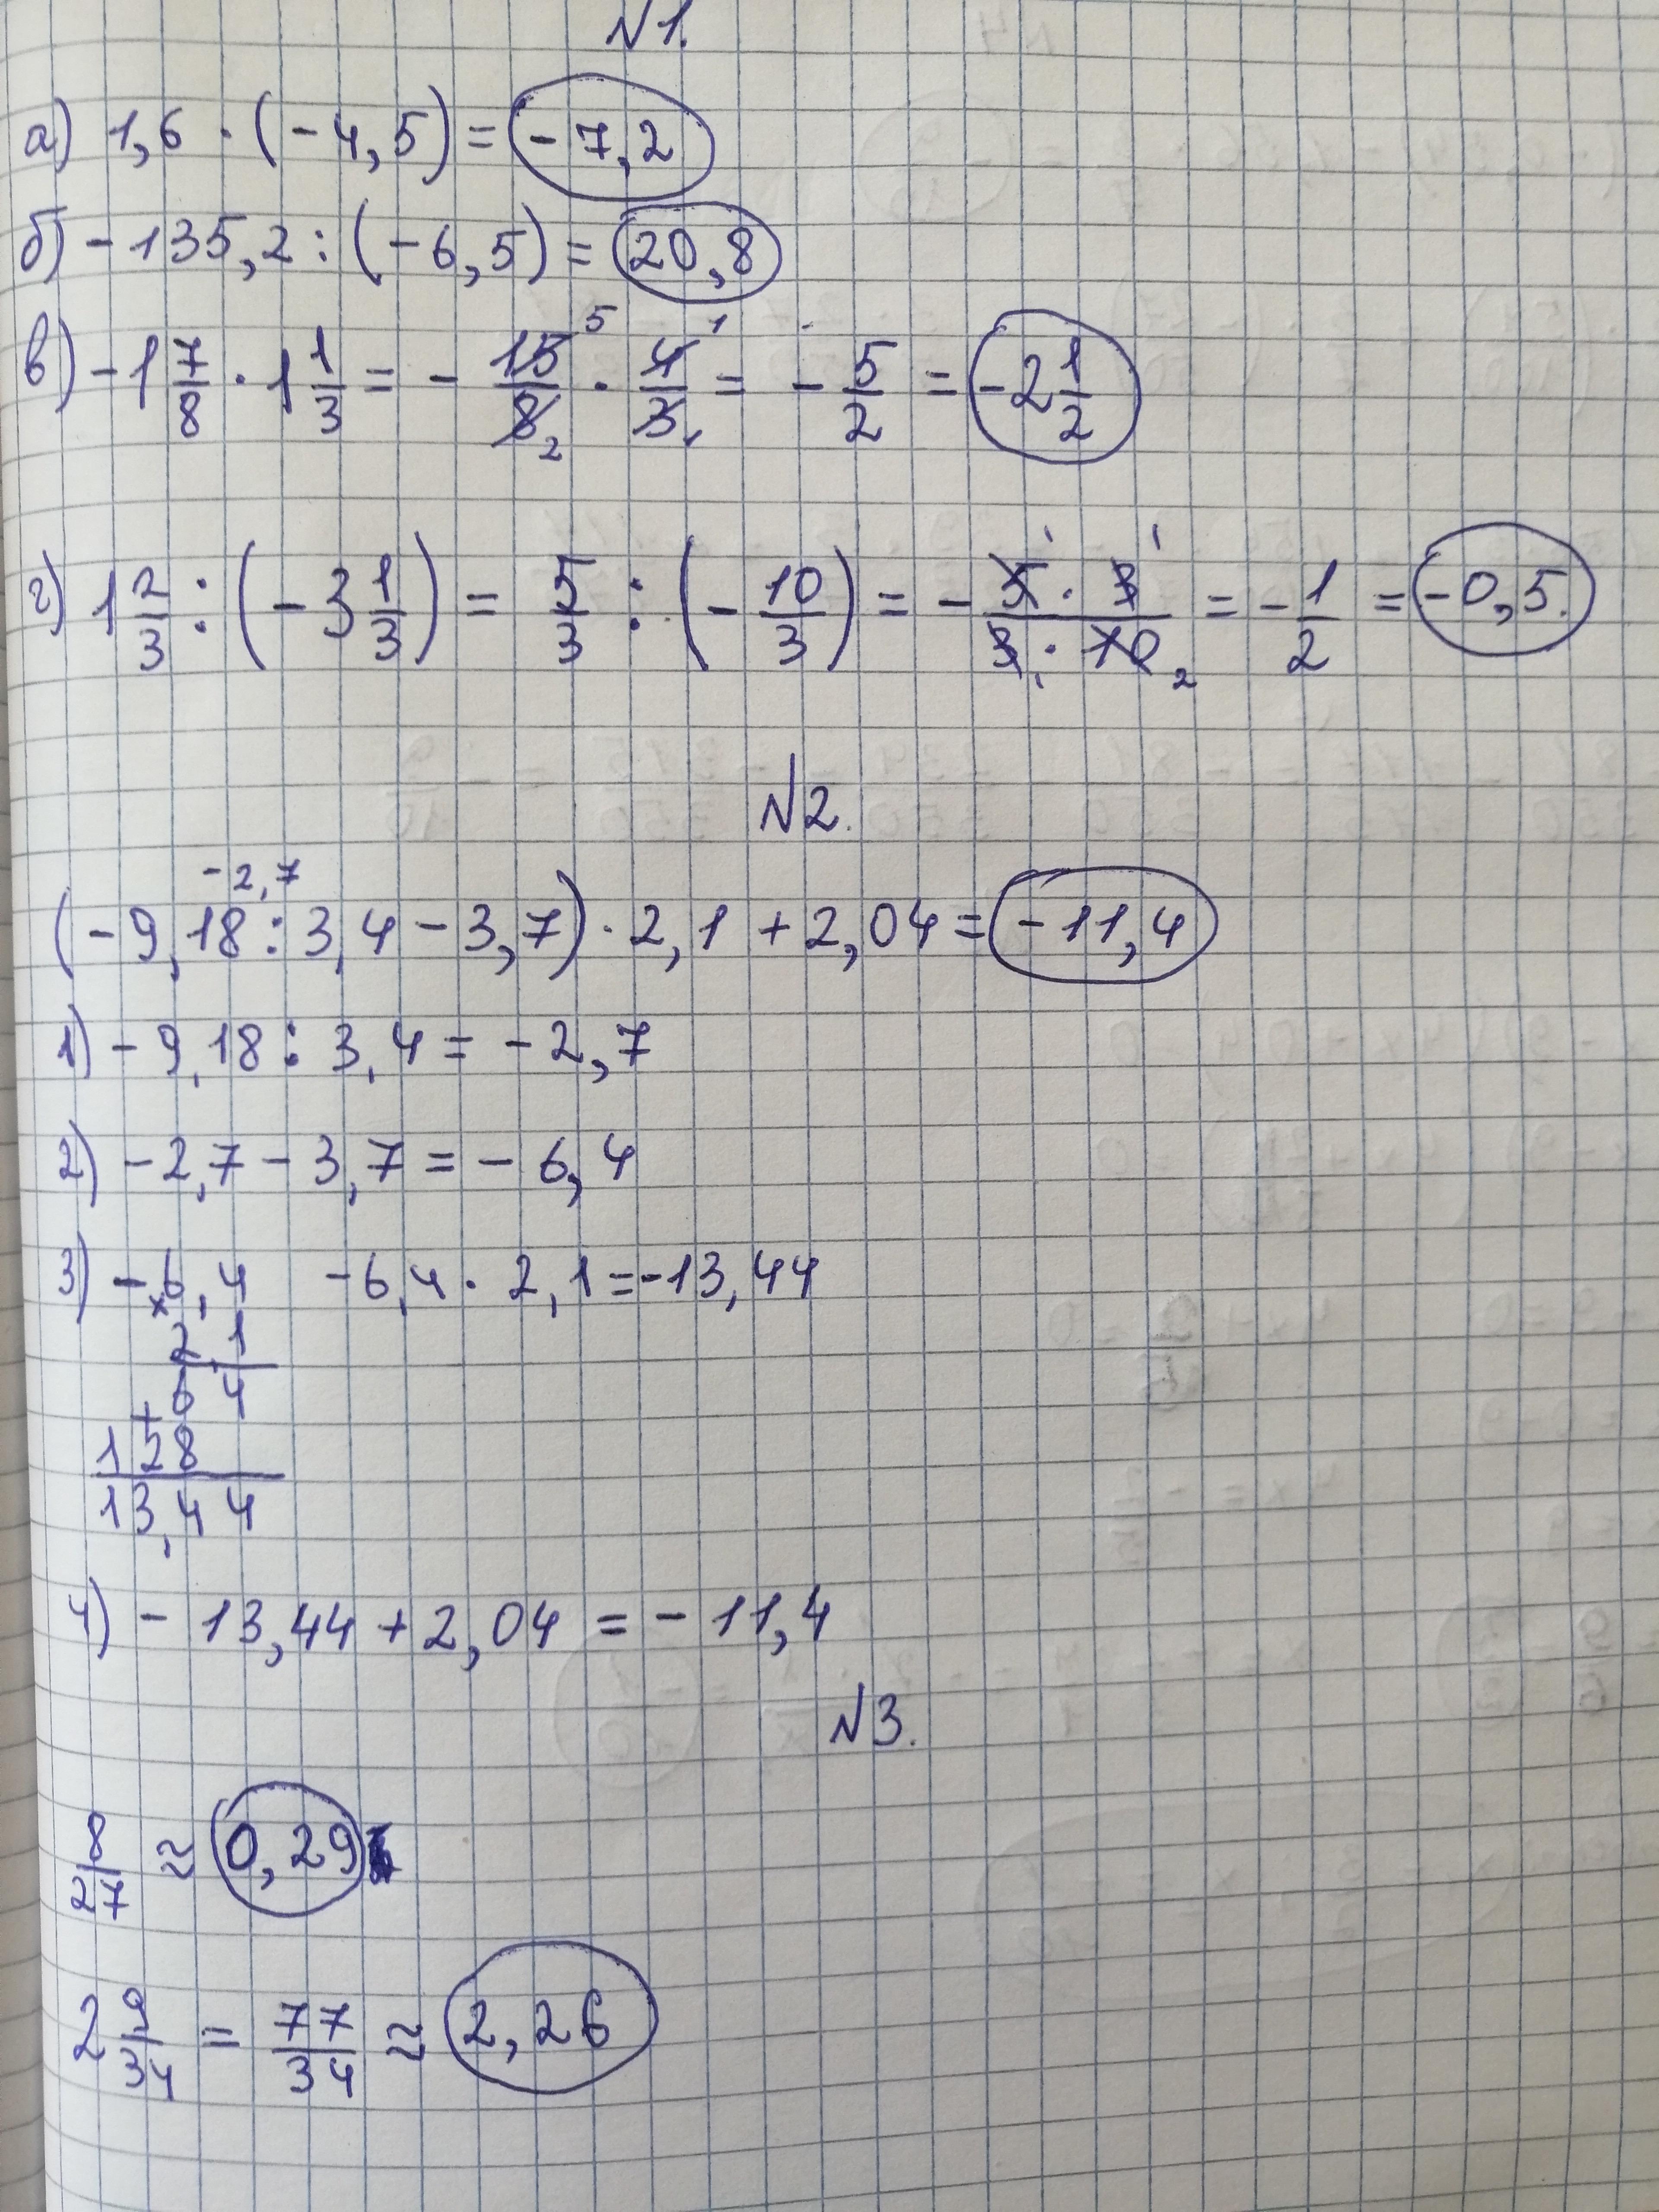 №1.
а) 1,6 · (-4,5) = -7,2
б) -135,2 : (-6,5) = 20,8
в) -1 7/8 · 1 1/3 = - 15/8 · 4/3 = - 5/2 = -2 1/2
г) 1 2/3 : (-3 1/3) = 5/3 : (- 10/3) = - 5 · 3 / 3 · 10 = - 1/2 = -0,5.
№2.
-2,7
(-9,18 : 3,4 - 3,7) · 2,1 + 2,04 = -11,4
1) -9,18 : 3,4 = -2,7
2) -2,7 - 3,7 = -6,4
3) -6,4 -6,4 · 2,1 = -13,44
× 2,1
+ 6 4
1 2 8
13,44
4) -13,44 + 2,04 = -11,4
№3.
8/27 ≈ 0,29
2 9/34 = 77/34 ≈ 2,26